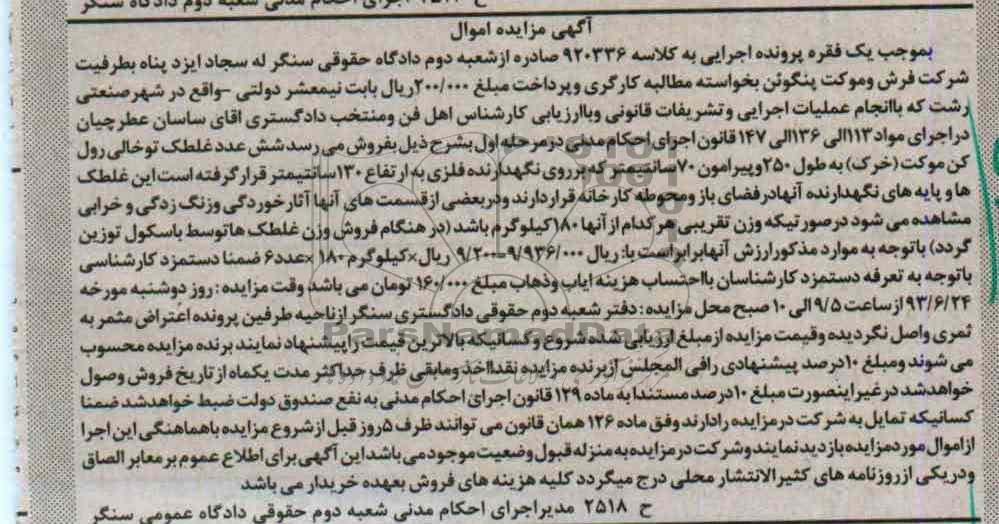 ح ۲۵۱۷ اجرای احکام مدنی شعبه دوم دادگاه سنگر
آگهی مزایده اموال
بموجب یک فقره پرونده اجرایی به کلاسه ۹۲۰۳۳۶ صادره ازشعبه دوم دادگاه حقوقی سنگر له سجاد ایزد پناه بطرفیت
شرکت فرش وموکت پنگوئن بخواسته مطالبه کارگری وپرداخت مبلغ ۲۰۰/۰۰۰ریال بابت نیمعشر دولتی -واقع در شهرصنعتی
رشت که باانجام عملیات اجرایی وتشریفات قانونی وباارزیابی کارشناس اهل فن ومنتخب دادگستری اقای ساسان عطرچیان
دراجرای مواد۱۱۳الی ۱۳۶الی ۱۴۷قانون اجرای احکام مدنی درمرحله اول بشرح ذیل بفروش می رسد شش عدد غلطک توخالی رول
کن موکت (خرک) به طول ۲۵۰وپیرامون ۷۰سانتیمتر که برروی نگهدارنده فلزی به ارتفاع ۱۳۰سانتیمتر قرارگرفته است این غلطک
ها و پایه های نگهدارنده آنهادرفضای باز ومحوطه کارخانه قراردارند ودربعضی ازقسمت های آنها آثارخوردگی وزنگ زدگی و خرابی
مشاهده می شود درصورتیکه وزن تقریبی هرکدام ازآنها ۱۸۰کیلوگرم باشد (در هنگام فروش وزن غلطک هاتوسط باسکول توزین
گردد) باتوجه به موارد مذکورارزش آنهابرابراست با: ریال ۹/۹۳۶/۰۰۰=۹/۲۰۰ ریال×کیلوگرم۱۸۰ ×عدد۶ ضمنا دستمزد کارشناسی
باتوجه به تعرفه دستمزد کارشناسان بااحتساب هزینه ایاب وذهاب مبلغ ۱۶۰/۰۰۰ تومان می باشد وقت مزایده : روز دوشنبه مورخه
۹۳/۶/۲۴ ازساعت ۹/۵ الی ۱۰ صبح محل مزایده : دفتر شعبه دوم حقوقی دادگستری سنگر ازناحیه طرفین پرونده اعتراض مثمر به
ثمری واصل نگردیده وقیمت مزایده ازمبلغ ارزیابی شده شروع وکسانیکه بالاترین قیمت راپیشنهاد نمایند برنده مزایده محسوب
می شوند ومبلغ ۱۰درصد پیشنهادی رافی المجلس ازبرنده مزایده نقدااخذ ومابقی ظرف حداکثر مدت یکماه ازتاریخ فروش وصول
خواهدشد درغیر اینصورت مبلغ ۱۰درصد مستندا به ماده ۱۲۹ قانون اجرای احکام مدنی به نفع صندوق دولت ضبط خواهدشد ضمنا
کسانیکه تمایل به شرکت درمزایده رادارند وفق ماده ۱۲۶ همان قانون می توانند ظرف ۵روز قبل ازشروع مزایده باهماهنگی این اجرا
ازاموال موردمزایده بازدید نمایند وشرکت درمزایده به منزله قبول وضعیت موجود می باشد این آگهی برای اطلاع عموم برمعابر الصاق
ودریکی ازروزنامه های کثیرالانتشار محلی درج میگردد کلیه هزینه های فروش بعهده خریدار می باشد
ح ۲۵۱۸ مدیراجرای احکام مدنی شعبه دوم حقوقی دادگاه عمومی سنگر
ParsNamadData